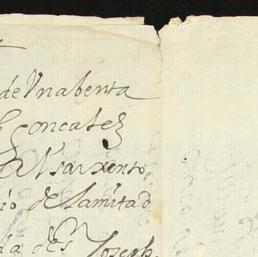 de Vna benta
Goncales
a Vsarxento
io de lamitad
da de Sn Joseph